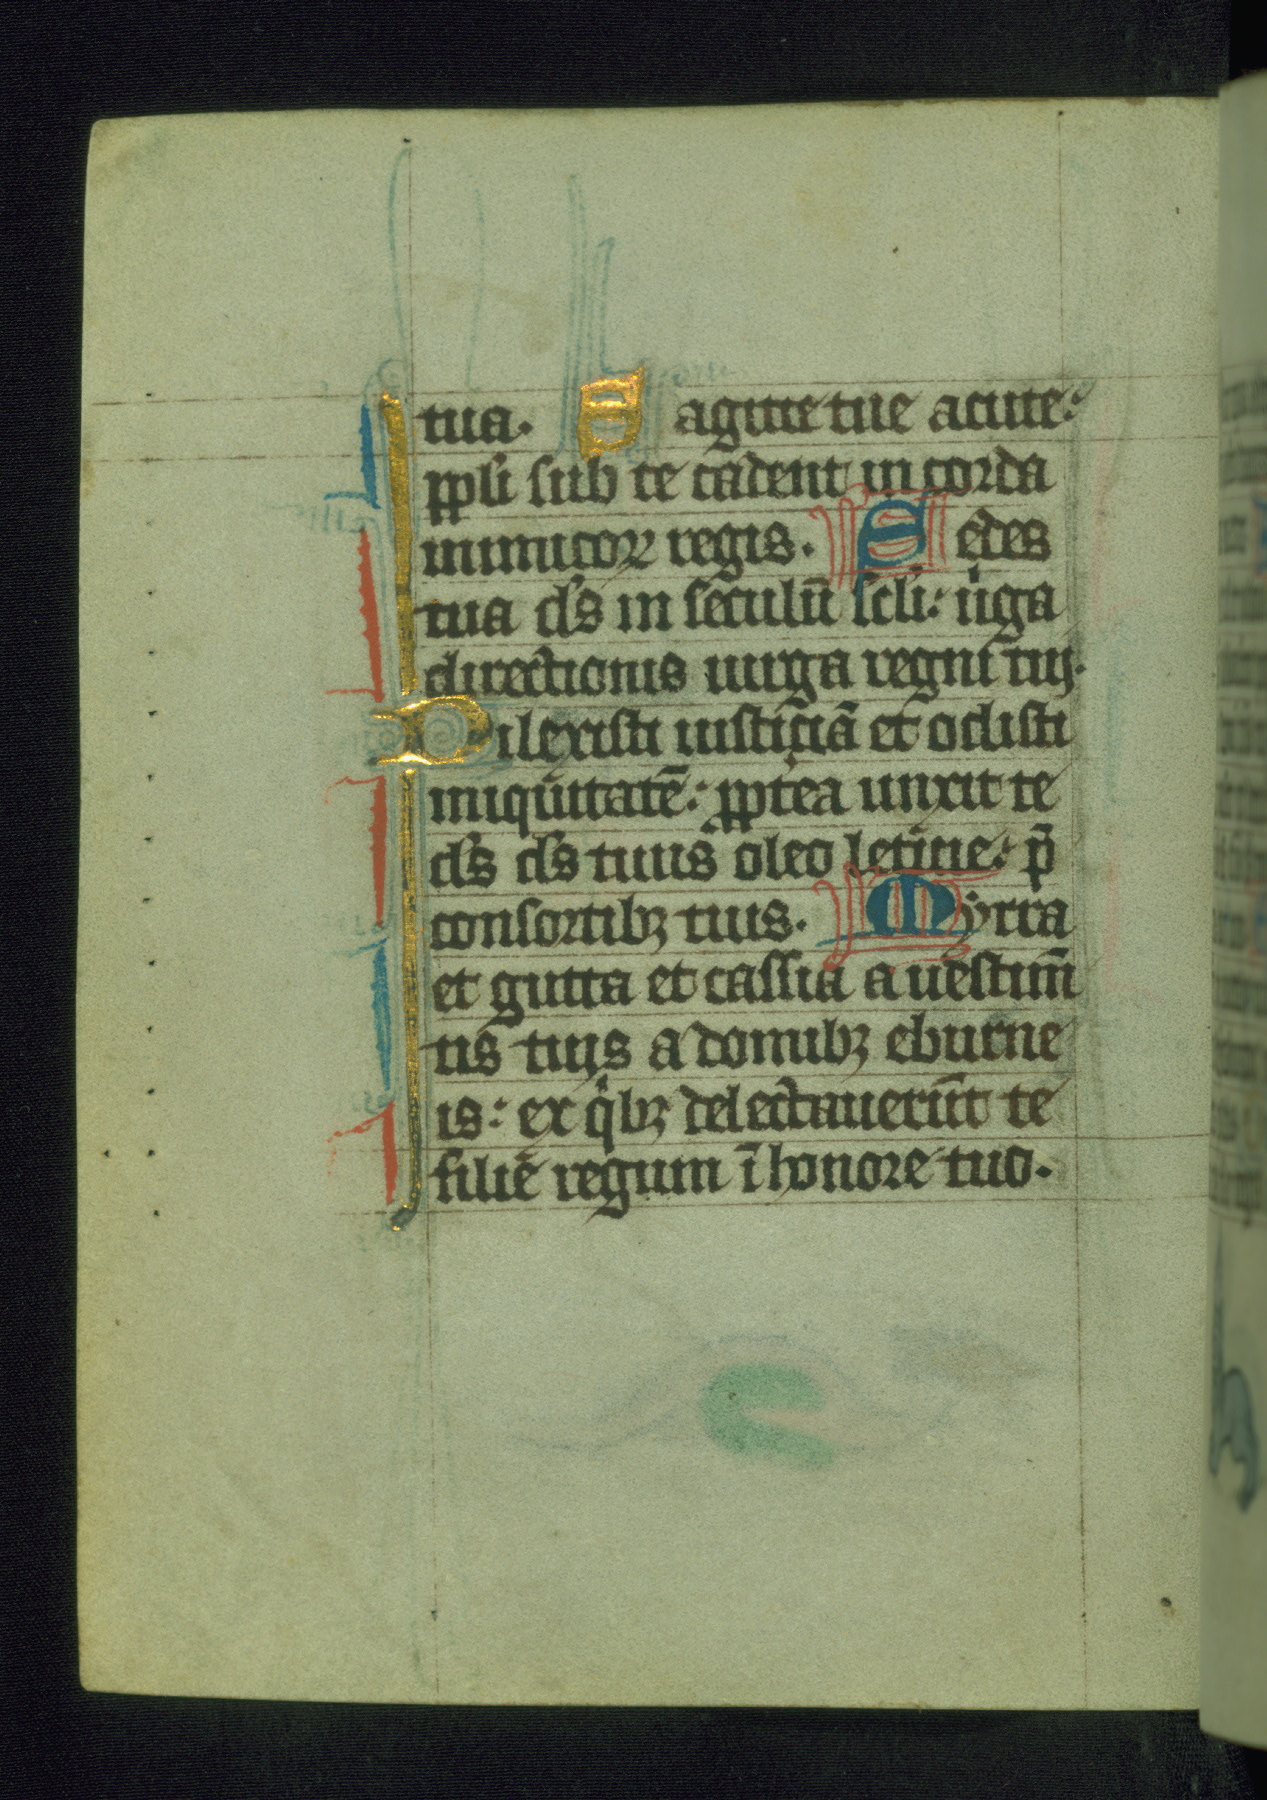 tua. Sagitte tue acute:
ppli sub te cadent in corda
inimicoꝝ regis. Sedes
tua ds̄ in seculū scłi: uͥga
directionis uirga regni tui.
Dilexisti iusticiā et odisti
iniquitatē: ppt̾ea unxit te
ds̄ ds̄ tuus oleo leticie: p̄
consortibꝫ tuis. Myrra
et gutta et cassia a uestim̄
tis tuis a domibꝫ eburne
is: ex qͥbꝫ delectauerūt te
filie regum ī honore tuo.